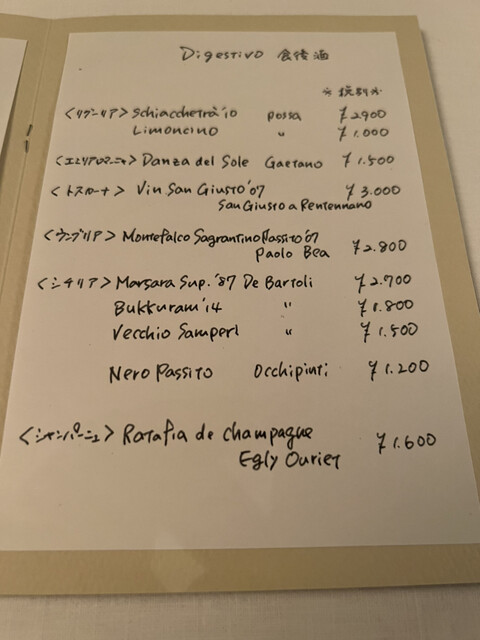 Digestivo 食後酒
※税別※
<リグーリア> Schiacchetrà '10 Possa ¥2900
Limoncino 〃 ¥1.000
<エミリアロマーニャ> Danza del Sole Gaetano ¥1.500
<トスカーナ> Vin San Giusto '07 ¥3.000
San Giusto a Rentennano
<ウンブリア> Montefalco Sagrantino Passito '07
Paolo Bea ¥2.800
<シチリア> Marsara Sup. '87 De Bartoli ¥2.700
Bukkuram '14 〃 ¥1.800
Vecchio Samperl 〃 ¥1.500
Nero Passito Occhipinti ¥1.200
<シャンパーニュ> Ratafia de champagne ¥1.600
Egly Ouriet